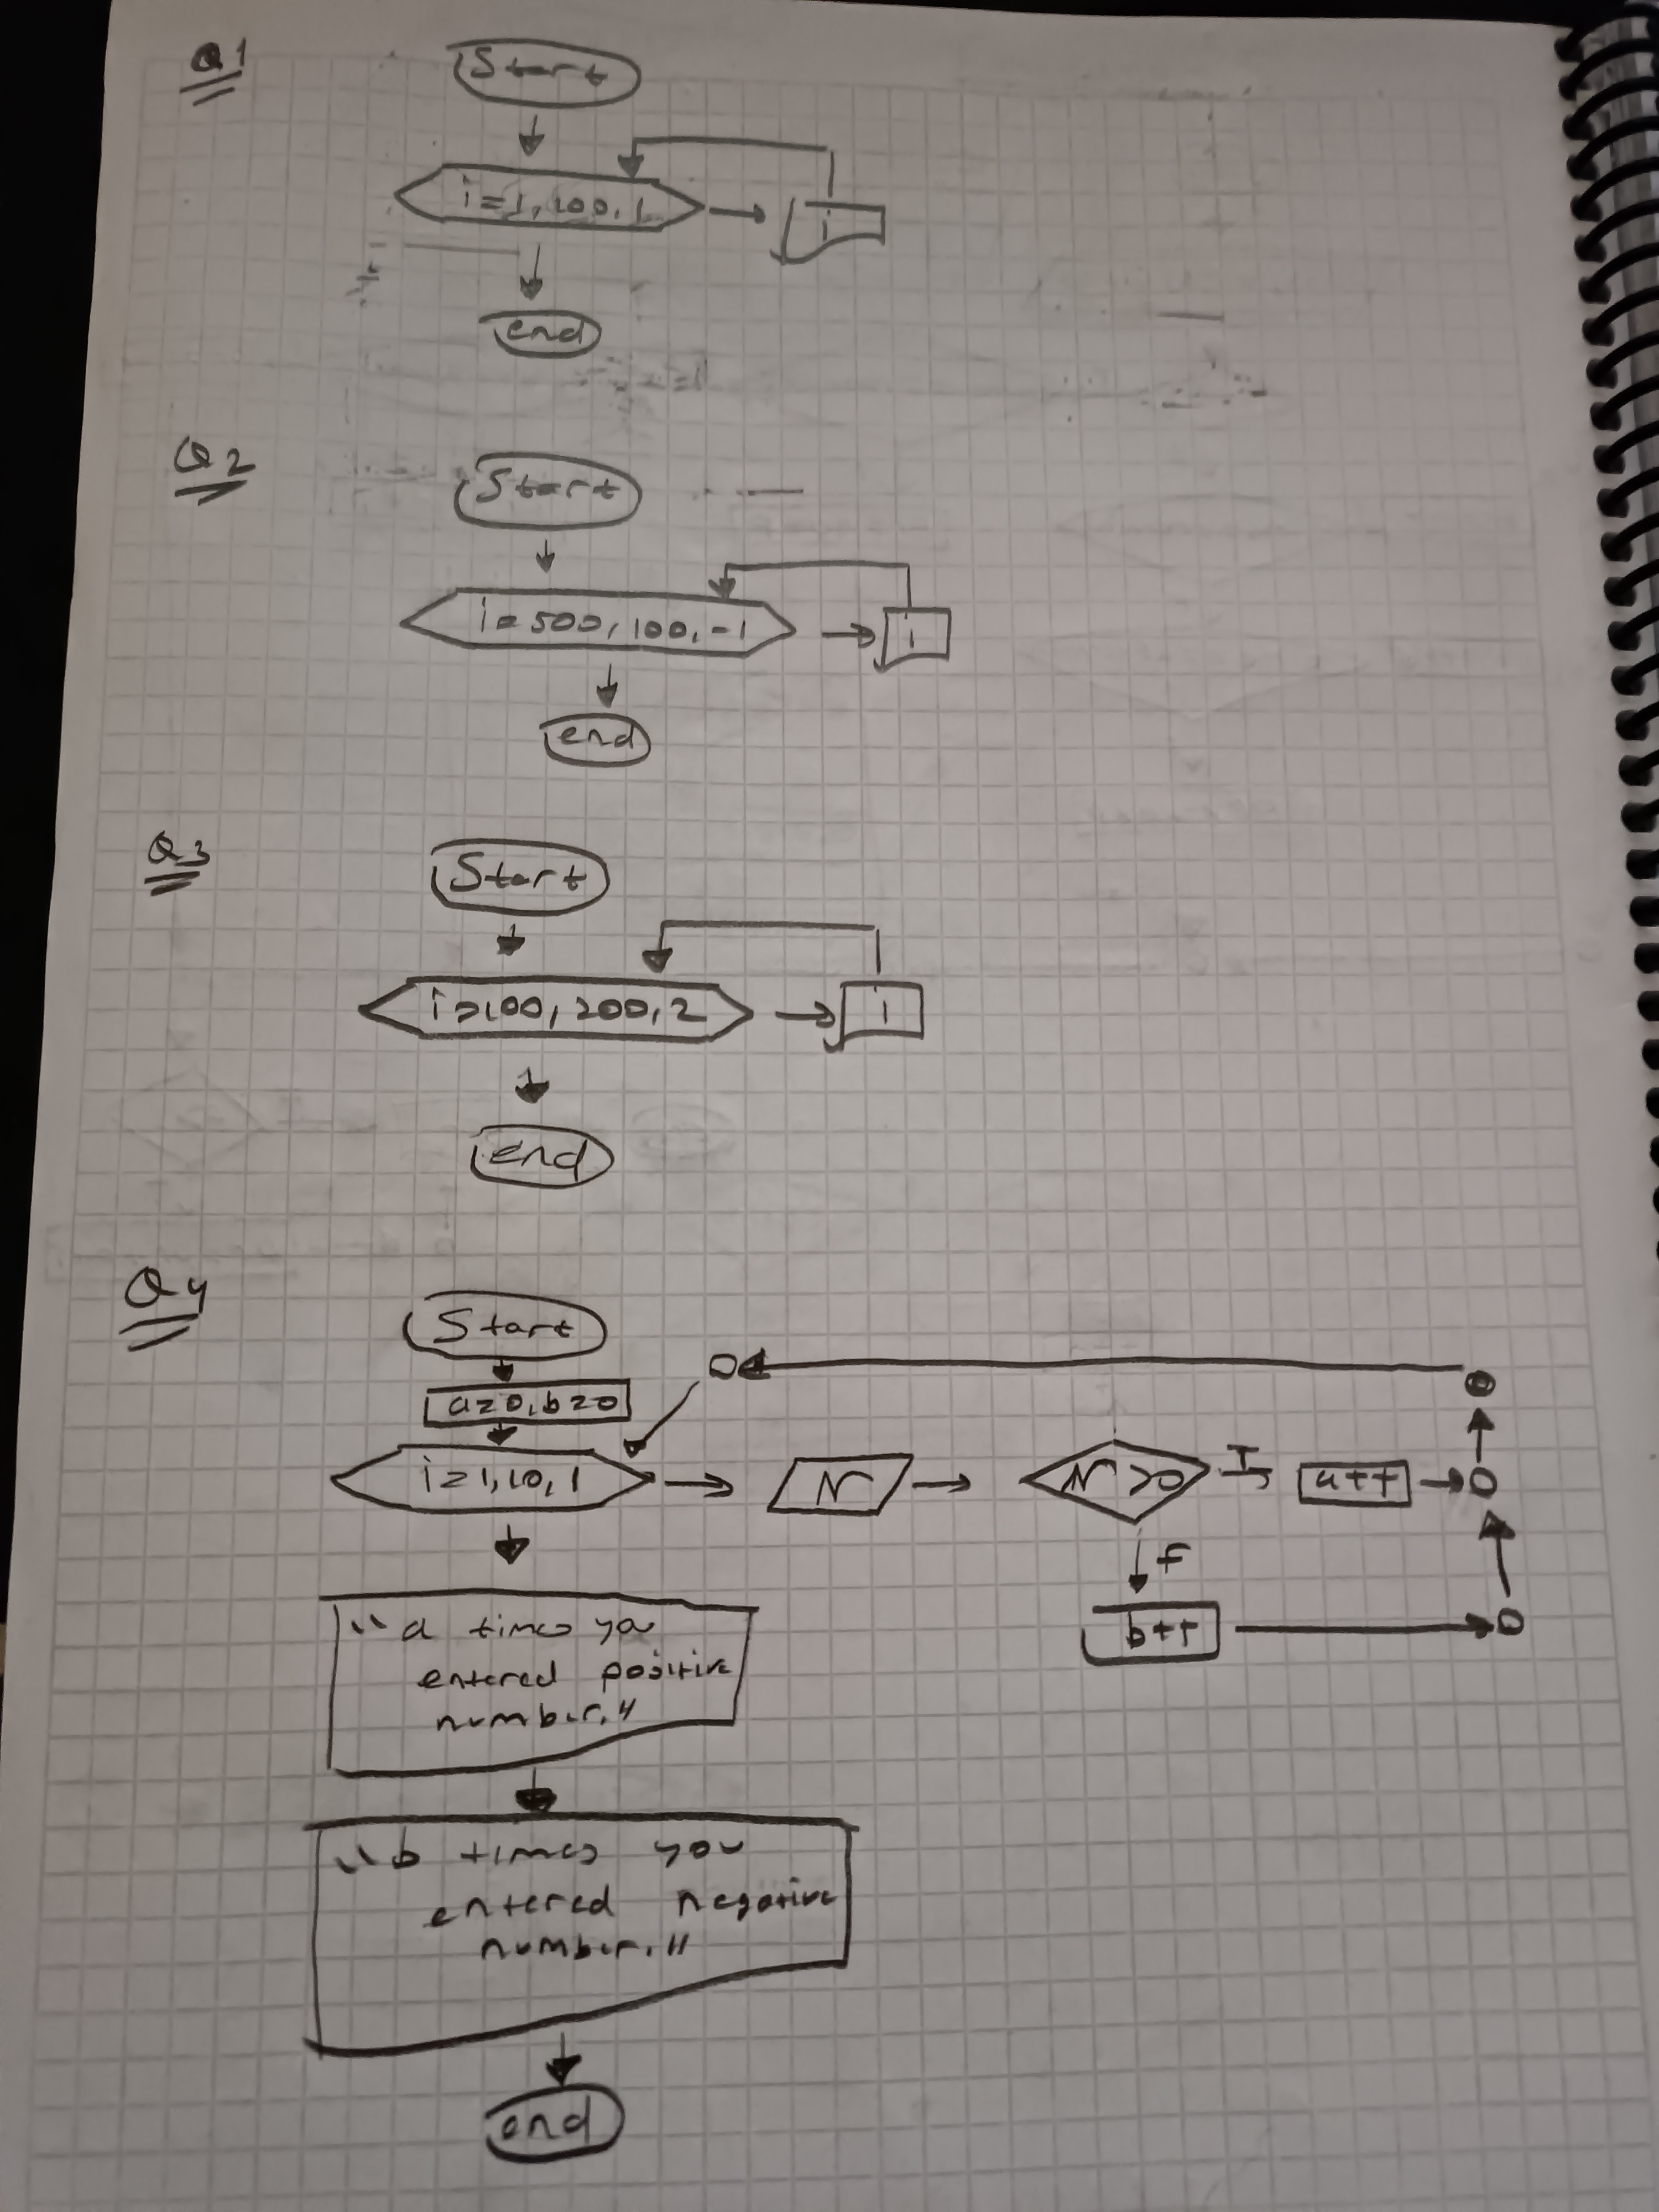 Q1
Start
i=1,100,1
i
end
Q2
Start
i=500,100,-1
i
end
Q3
Start
i=100,200,2
i
end
Q4
Start
a=0,b=0
i=1,10,1
N
N>0
T
a++
F
b++
"a times you
entered positive
number."
"b times you
entered negative
number."
end